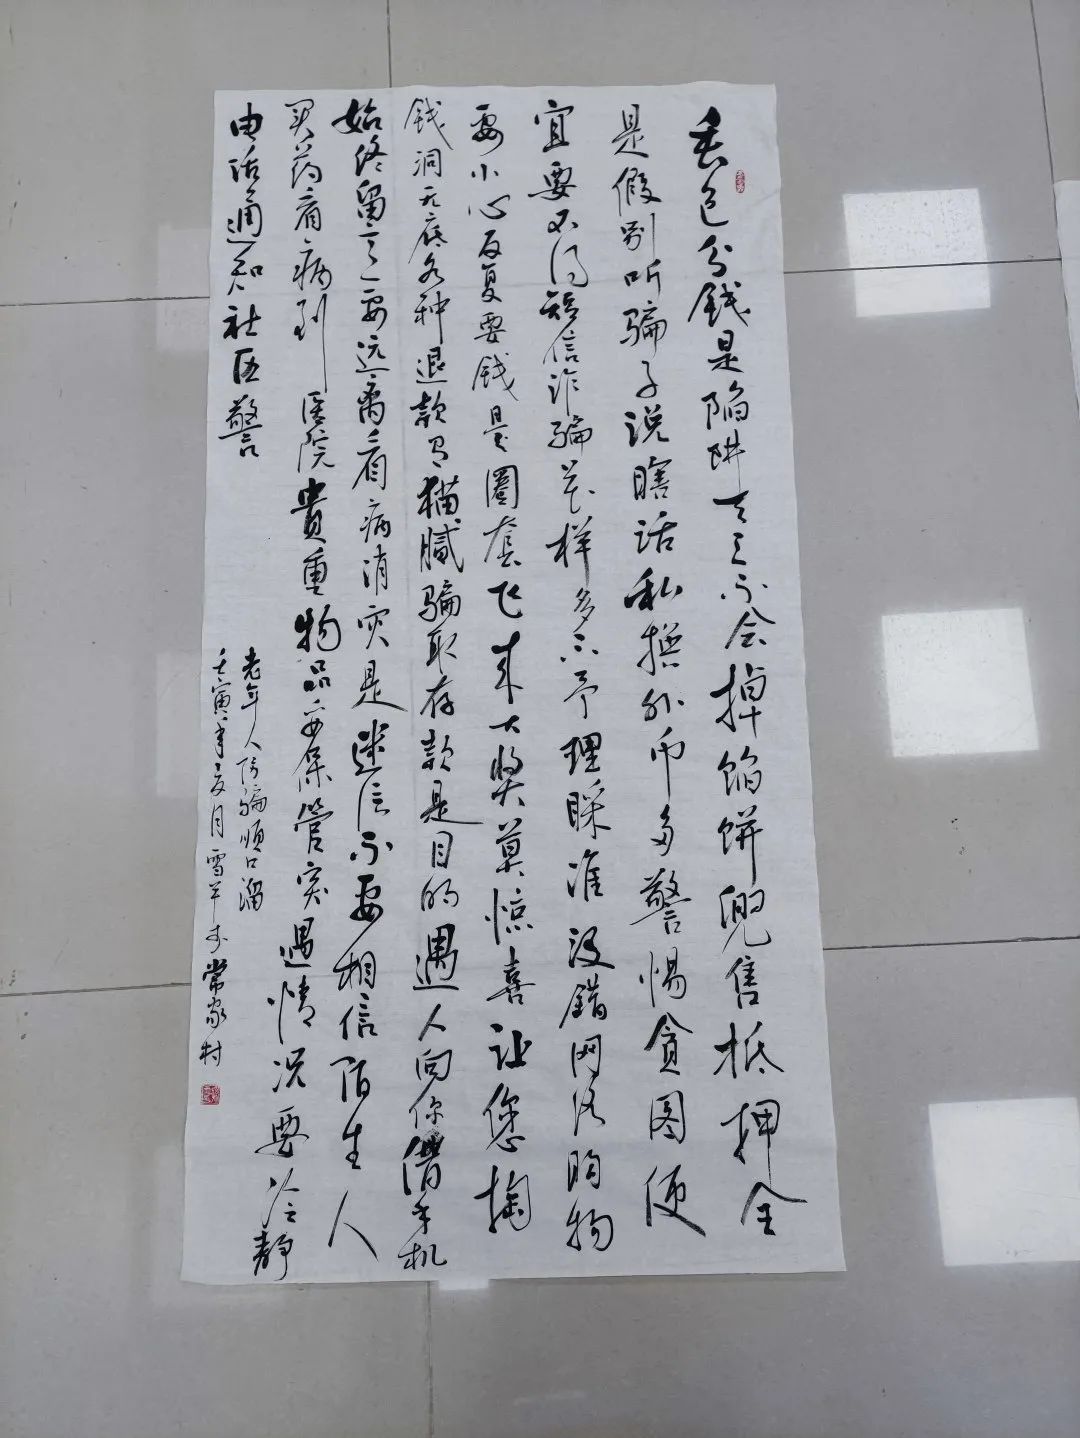 丢包分钱是陷阱天上不会掉馅饼兜售抵押全
是假别听骗子说瞎话私换外币多警惕贪图便
宜要不得短信诈骗花样多不予理睬准没错网络购物
要小心反复要钱是圈套飞来大奖莫惊喜让您掏
钱洞无底各种退款有猫腻骗取存款是目的遇人向你借手机
始终留意要远离看病消灾是迷信不要相信陌生人
买药看病到医院贵重物品妥保管突遇情况要冷静
电话通知社区警
老年人防骗顺口溜
壬寅年夏月雪平常家村